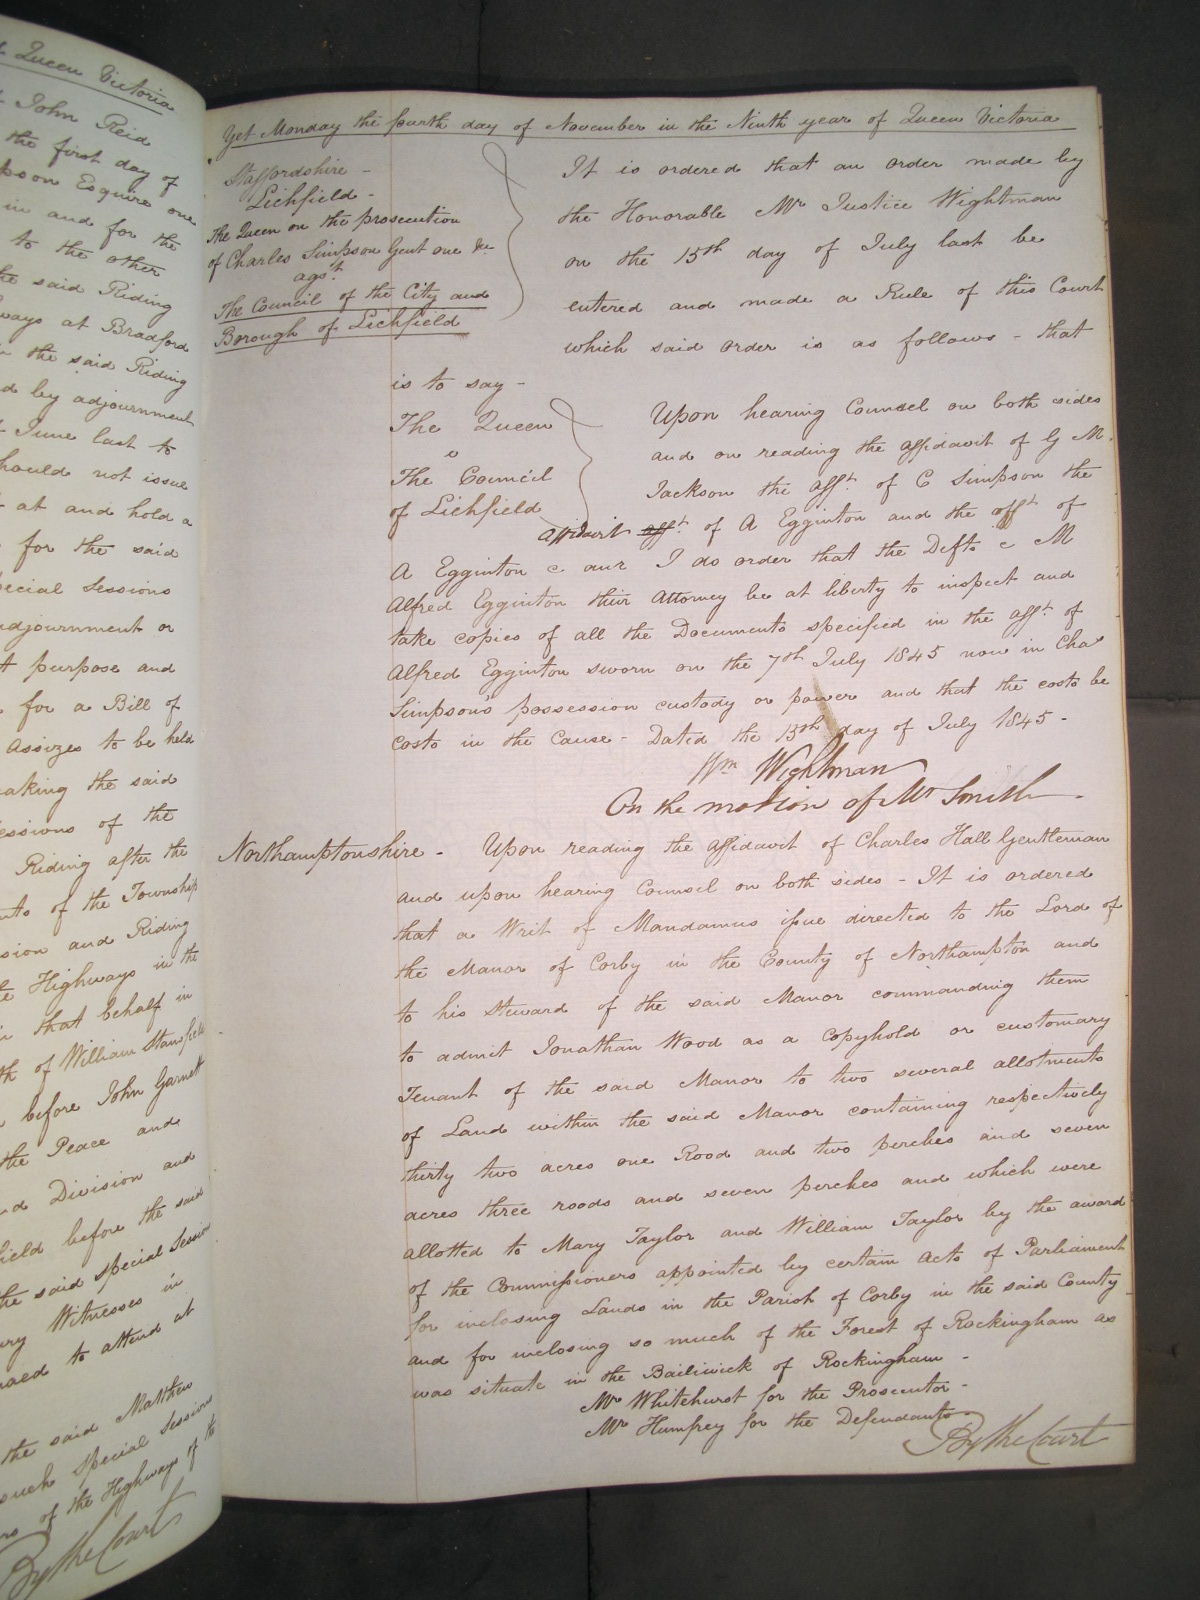 Queen Victoria
John Reid
the first day of
Simpson Esquire one
in and for the
to the other
the said Riding
ways at Bradford
the said Riding
by adjournment
June last to
should not issue
at and hold a
for the said
Special Sessions
adjournment or
purpose and
for a Bill of
Assizes to be held
making the said
Sessions of the
Riding after the
of the Township
and Riding
Highways in the
that behalf in
of William Stansfield
before John Garnett
the Peace and
Division and
before the said
the said Special Session
Witnesses in
to attend at
the said Matthew
such Special Sessions
of the Highways of the
By the Court
Yet Monday the fourth day of November in the Ninth year of Queen Victoria
Staffordshire -
Lichfield -
The Queen on the prosecution
of Charles Simpson Gent one &c
agst
The Council of the City and
Borough of Lichfield
It is ordered that an order made by
the Honorable Mr Justice Wightman
on the 15th day of July last be
entered and made a Rule of this Court
which said order is as follows - that
is to say -
The Queen
v
The Council
of Lichfield
Upon hearing Counsel on both sides
and on reading the affidavit of G M
Jackson the afft. of C Simpson the
affidavit afft. of A Egginton and the afft of
A Egginton c anr I do order that the Defts c M
Alfred Egginton their Attorney be at liberty to inspect and
take copies of all the Documents specified in the afft. of
Alfred Egginton sworn on the 7th July 1845 now in Chas
Simpson's possession custody or power and that the costs be
costs in the Cause - Dated the 15th day of July 1845 -
Wm Wightman
On the motion of Mr Smith -
Northamptonshire - Upon reading the affidavit of Charles Hall Gentleman
and upon hearing Counsel on both sides - It is ordered
that a Writ of Mandamus issue directed to the Lord of
the Manor of Corby in the County of Northampton and
to his Steward of the said Manor commanding them
to admit Jonathan Wood as a Copyhold or customary
Tenant of the said Manor to two several allotments
of Land within the said Manor containing respectively
thirty two acres one Rood and two perches and seven
acres three roods and seven perches and which were
allotted to Mary Taylor and William Taylor by the award
of the Commissioners appointed by certain Acts of Parliament
for inclosing Lands in the Parish of Corby in the said County
and for inclosing so much of the Forest of Rockingham as
was situate in the Bailiwick of Rockingham -
Mr Whitehurst for the Prosecutor -
Mr Humfrey for the Defendants
By the Court